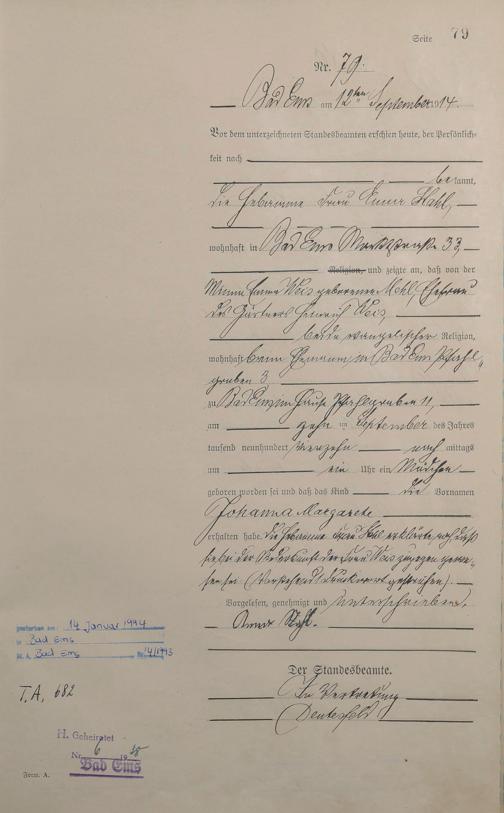 Seite 79
Nr. 79.
Bad Ems am 12ten September 1914.
Vor dem unterzeichneten Standesbeamten erschien heute, der Persönlich-
keit nach
bekannt,
die Hebamme Frau Anna Stahl,
wohnhaft in Bad Ems Marktstraße 33,
Religion, und zeigte an, daß von der
Minna Emma Weis geborenen Mehl, Ehefrau
des Gärtners Heinrich Weis,
beide evangelischer Religion,
wohnhaft beim Ehemann in Bad Ems Pfahl-
graben 3
zu Bad Ems im Hause Pfahlgraben 11,
am zehn ten September des Jahres
tausend neunhundert vierzehn nach mittags
um ein Uhr ein Mädchen
geboren worden sei und daß das Kind die Vornamen
Johanna Margarete
erhalten habe. Die Hebamme Frau Stahl erklärte, noch daß
sie bei der Niederkunft der Frau Weis zugegen gewe-
sen sei. (Vorstehend 1 Druckwort gestrichen).
Vorgelesen, genehmigt und unterschrieben.
Anna Stahl.
Der Standesbeamte.
In Vertretung
gestorben am: 14 Januar 1994
in Bad Ems
Bad Ems Nr. 14/1993
T.A. 682
H. Geheiratet
Nr. 6 1938
Bad Ems
Form. A.